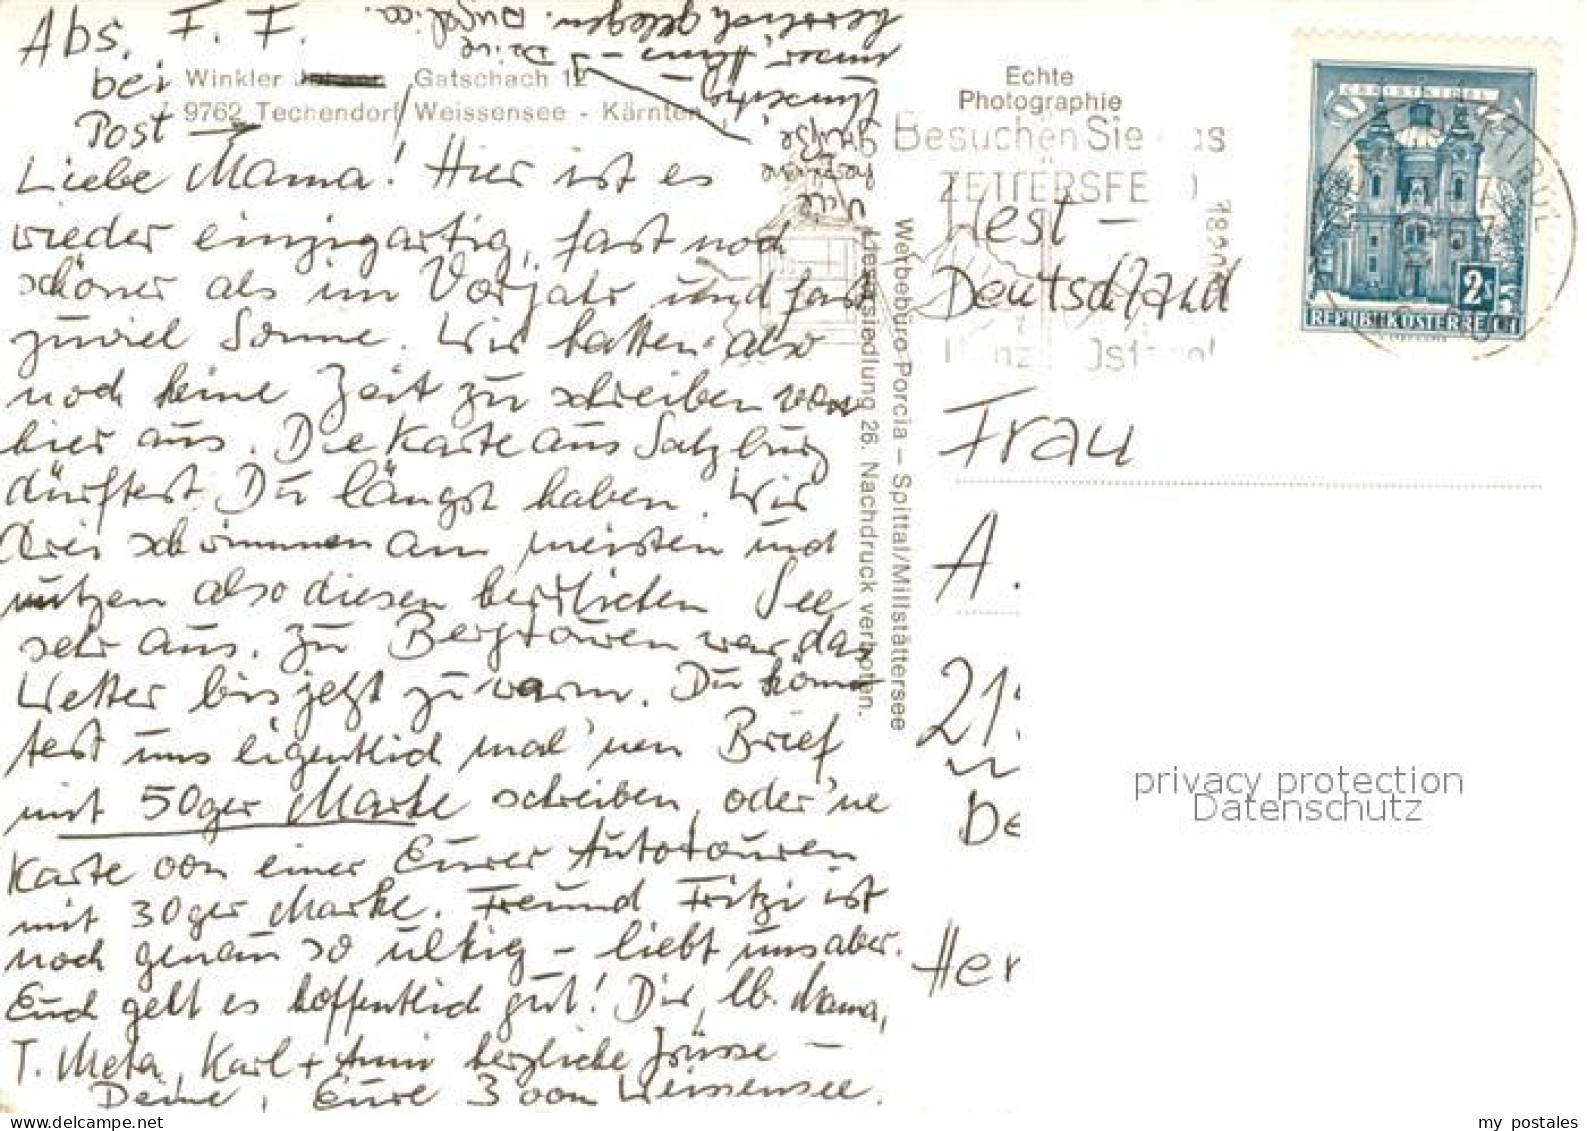 Abs. F. F.
bei Winkler Gatschach 12
Post 9762 Techendorf Weissensee - Kärnten
Liebe Mama! Hier ist es
wieder einzigartig, fast noch
schöner als im Vorjahr und fast
zuviel Sonne. Wir hatten also
noch keine Zeit zu schreiben von
hier aus. Die Karte aus Salzburg
dürftest Du längst haben. Wir
drei schwimmen am meisten und
nützen also diesen herrlichen See
sehr aus. Zu Bergtouren war das
Wetter bis jetzt zu warm. Du könn
test uns eigentlich mal 'nen Brief
mit 50ger Marke schreiben, oder 'ne
Karte von einer Eurer Autotouren
mit 30ger Marke. Freund Fritzi ist
noch genau so ulkig – liebt uns aber.
Euch geht es hoffentlich gut! Dir, lb. Mama,
T. Meta, Karl + Anni herzliche Grüsse –
Deine, Eure 3 vom Weissensee.
Viele
herzliche
Grüße
unser
herrlich gelegen.
Echte
Photographie
Werbebüro Porcia – Spittal/Millstättersee
Liesersiedlung 26. Nachdruck verboten.
Besuchen Sie das
ZETTERSFELD
REPUBLIK ÖSTERREICH
CHRISTKINDL
2 S
West –
Deutschland
Frau
A.
21
De
Her
privacy protection
Datenschutz
my postales